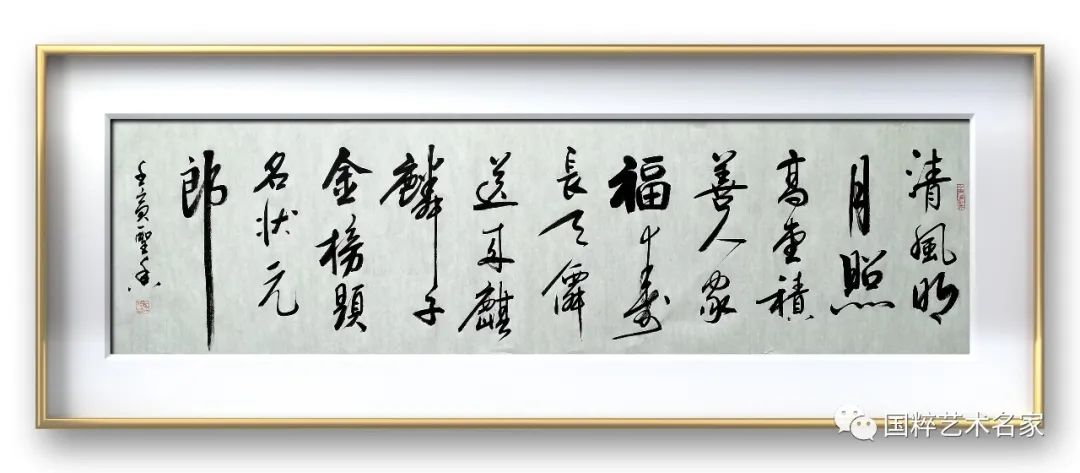 清風明
月照
高堂積
善人家
福壽
長天僊
送来麒
麟子
金榜題
名状元
郎
壬寅聖
国粹艺术名家